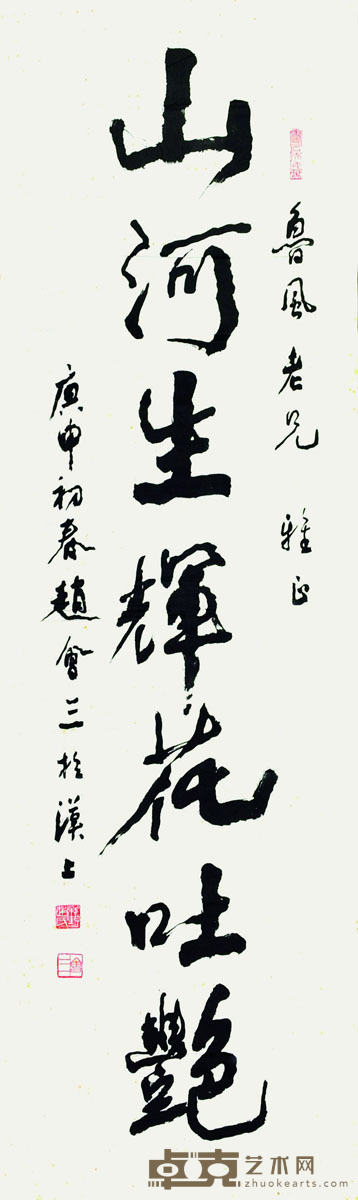 魯風老兄 雅正
山河生輝花吐艷
庚申初春趙會三於漢上
卓克艺术网
zhuokearts.com